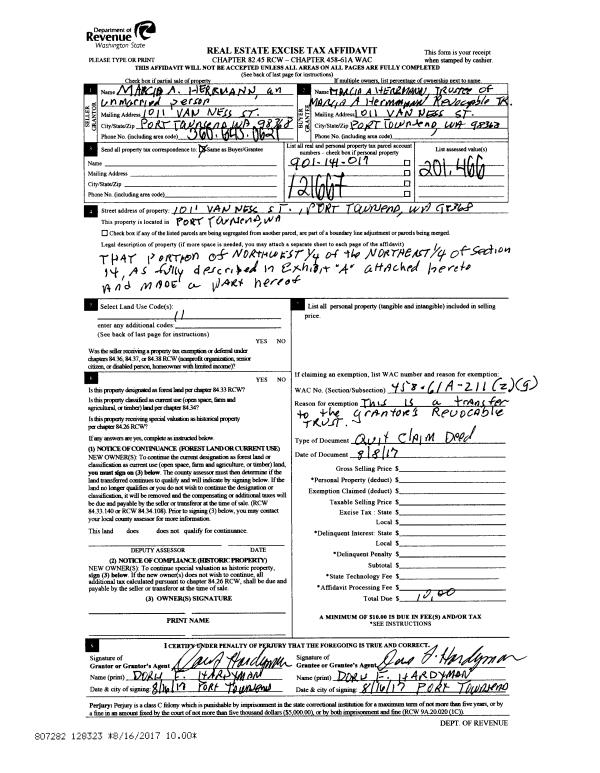 Department of
Revenue
Washington State
REAL ESTATE EXCISE TAX AFFIDAVIT
This form is your receipt
PLEASE TYPE OR PRINT
CHAPTER 82.45 RCW – CHAPTER 458-61A WAC
when stamped by cashier.
THIS AFFIDAVIT WILL NOT BE ACCEPTED UNLESS ALL AREAS ON ALL PAGES ARE FULLY COMPLETED
(See back of last page for instructions)
Check box if partial sale of property
If multiple owners, list percentage of ownership next to name.
1 Name MARCIA A. HERRMANN, an
unmarried person
SELLER GRANTOR
Mailing Address 1011 VAN NESS ST.
City/State/Zip PORT TOWNSEND WA 98368
Phone No. (including area code) 360.643.0621
2 Name MARCIA A HERRMANN, TRUSTEE OF
MARCIA A Herrmann Revocable TR.
BUYER GRANTEE
Mailing Address 1011 VAN NESS ST.
City/State/Zip PORT TOWNSEND, WA 98368
Phone No. (including area code)
3 Send all property tax correspondence to: Same as Buyer/Grantee
Name
Mailing Address
City/State/Zip
Phone No. (including area code)
List all real and personal property tax parcel account
numbers – check box if personal property
901-14-017
121667
List assessed value(s)
201,466
4 Street address of property: 1011 VAN NESS ST., PORT TOWNSEND, WA 98368
This property is located in PORT TOWNSEND, WA
Check box if any of the listed parcels are being segregated from another parcel, are part of a boundary line adjustment or parcels being merged.
Legal description of property (if more space is needed, you may attach a separate sheet to each page of the affidavit)
THAT PORTION OF NORTHWEST 1/4 of the NORTHEAST 1/4 of Section
14, AS fully described in Exhibit "A" attached hereto
AND MADE a PART hereof
5 Select Land Use Code(s):
11
enter any additional codes:
(See back of last page for instructions)
YES NO
Was the seller receiving a property tax exemption or deferral under
chapters 84.36, 84.37, or 84.38 RCW (nonprofit organization, senior
citizen, or disabled person, homeowner with limited income)?
6 YES NO
Is this property designated as forest land per chapter 84.33 RCW?
Is this property classified as current use (open space, farm and
agricultural, or timber) land per chapter 84.34?
Is this property receiving special valuation as historical property
per chapter 84.26 RCW?
If any answers are yes, complete as instructed below.
(1) NOTICE OF CONTINUANCE (FOREST LAND OR CURRENT USE)
NEW OWNER(S): To continue the current designation as forest land or
classification as current use (open space, farm and agriculture, or timber) land,
you must sign on (3) below. The county assessor must then determine if the
land transferred continues to qualify and will indicate by signing below. If the
land no longer qualifies or you do not wish to continue the designation or
classification, it will be removed and the compensating or additional taxes will
be due and payable by the seller or transferor at the time of sale. (RCW
84.33.140 or RCW 84.34.108). Prior to signing (3) below, you may contact
your local county assessor for more information.
This land does does not qualify for continuance.
DEPUTY ASSESSOR DATE
(2) NOTICE OF COMPLIANCE (HISTORIC PROPERTY)
NEW OWNER(S): To continue special valuation as historic property,
sign (3) below. If the new owner(s) does not wish to continue, all
additional tax calculated pursuant to chapter 84.26 RCW, shall be due and
payable by the seller or transferor at the time of sale.
(3) OWNER(S) SIGNATURE
PRINT NAME
7 List all personal property (tangible and intangible) included in selling
price.
If claiming an exemption, list WAC number and reason for exemption:
WAC No. (Section/Subsection) 458-61A-211(2)(g)
Reason for exemption This is a transfer
to the grantor's Revocable
TRUST.
Type of Document Quit Claim Deed
Date of Document 8/8/17
Gross Selling Price $
*Personal Property (deduct) $
Exemption Claimed (deduct) $
Taxable Selling Price $
Excise Tax : State $
Local $
*Delinquent Interest: State $
Local $
*Delinquent Penalty $
Subtotal $
*State Technology Fee $
*Affidavit Processing Fee $
Total Due $ 10.00
A MINIMUM OF $10.00 IS DUE IN FEE(S) AND/OR TAX
*SEE INSTRUCTIONS
8 I CERTIFY UNDER PENALTY OF PERJURY THAT THE FOREGOING IS TRUE AND CORRECT.
Signature of
Grantor or Grantor's Agent
Name (print) DORY F. HARDYMAN
Date & city of signing: 8/16/17 PORT TOWNSEND
Signature of
Grantee or Grantee's Agent
Name (print) DORY F. HARDYMAN
Date & city of signing: 8/16/17 PORT TOWNSEND
Perjury: Perjury is a class C felony which is punishable by imprisonment in the state correctional institution for a maximum term of not more than five years, or by
a fine in an amount fixed by the court of not more than five thousand dollars ($5,000.00), or by both imprisonment and fine (RCW 9A.20.020 (1C)).
DEPT. OF REVENUE
807282 128323 *8/16/2017 10.00*